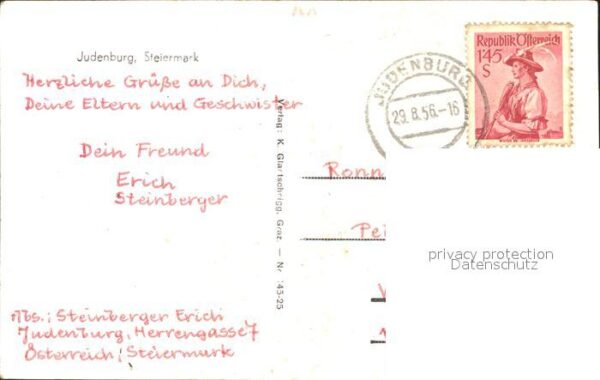 Judenburg, Steiermark
Herzliche Grüße an Dich,
Deine Eltern und Geschwister
Dein Freund
Erich
Steinberger
Abs.: Steinberger Erich
Judenburg, Herrengasse 7
Österreich / Steiermark
Verlag: K. Glantschnigg, Graz. — Nr. 145-25
JUDENBURG
29.8.56.-16
Republik Österreich
1'45
S
Ronn
Pei
privacy protection
Datenschutz